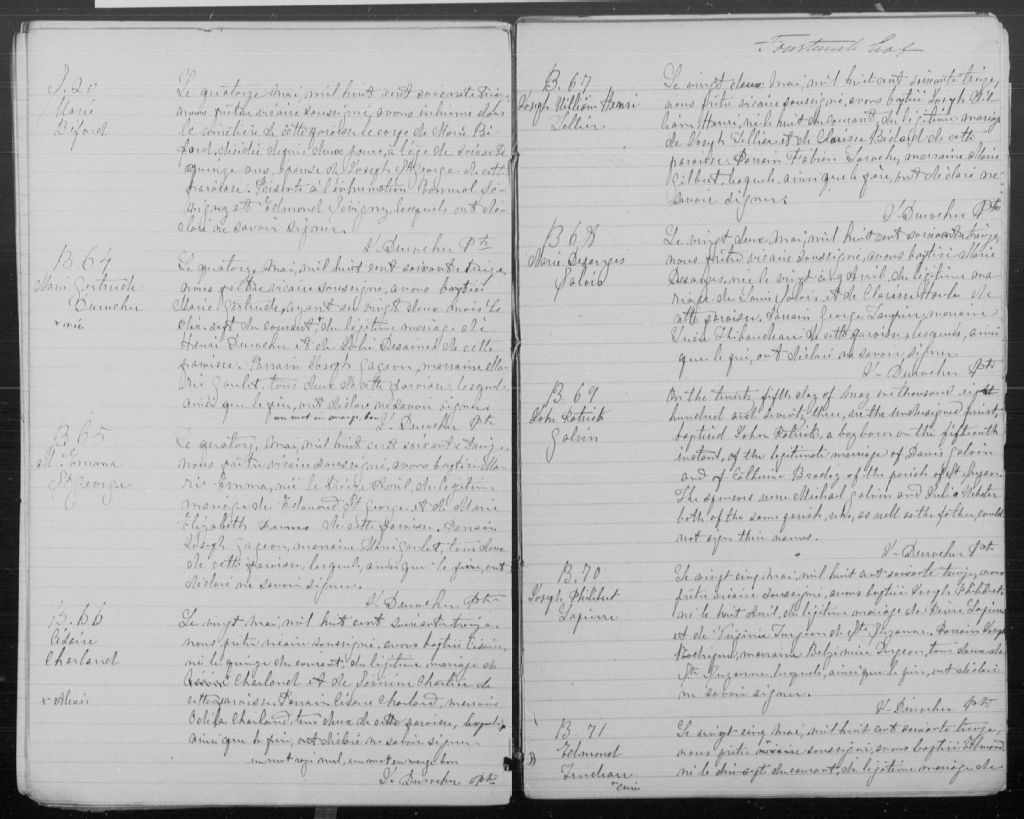 S. 20
Marie
Biford
Le quatorze mai, mil huit cent soixante treize,
nous prêtre vicaire soussigné, avons inhumé dans
le cimetière de cette paroisse le corps de Marie Bi-
ford, décédée depuis deux jours, à l'âge de soixante
quinze ans, épouse de Joseph St George de cette
paroisse. Présents à l'inhumation
et Edmond Sévigny, lesquels ont dé-
claré ne savoir signer.
J. Durocher Ptre
B 64
Marie Gertrude
Durocher
+ née
Le quatorze mai, mil huit cent soixante treize,
nous prêtre vicaire soussigné, avons baptisé
Marie Gertrude, ayant en vingt deux mois + le
dix-sept du courant, du légitime mariage de
Henri Durocher et de de cette
paroisse. Parrain Joseph Gageon, marraine Ma-
rie Goulet, tous deux de cette paroisse, lesquels
ainsi que le père, ont déclaré ne savoir signer.
un mot en marge, bon
J. Durocher Ptre
B 65
M. Emma
St George
Le quatorze mai, mil huit cent soixante treize,
nous prêtre vicaire soussigné, avons baptisé Ma-
rie Emma, née le treize Avril, du légitime
mariage de Edouard St George et de Marie
Elizabeth de cette paroisse. Parrain
Joseph Gageon, marraine Marie Goulet, tous deux
de cette paroisse, lesquels, ainsi que le père, ont
déclaré ne savoir signer.
J. Durocher Ptre
B. 66
Césaire
Charland
+ Alexis
Le vingt mai, mil huit cent soixante treize,
nous prêtre vicaire soussigné, avons baptisé Césaire,
né le quinze du courant, du légitime mariage de
Charland et de Séverine Charlier de
cette paroisse. Parrain Césaire Charland, marraine
Odela Charland, tous deux de cette paroisse, lesquels
ainsi que le père, ont déclaré ne savoir signer.
un mot rayé nul, un mot en marge bon
J. Durocher Ptre
Fourteenth leaf
B. 67
Joseph William Henri
Tellier
Le vingt deux mai, mil huit cent soixante treize,
nous prêtre vicaire soussigné, avons baptisé Joseph Wil-
liam Henri, né le huit du courant, du légitime mariage
de Joseph Tellier et de Clarisse Béland de cette
paroisse. Parrain Fabien Larochy, marraine Marie
Gilbert, lesquels, ainsi que le père, ont déclaré ne
savoir signer.
J. Durocher Ptre
B 68
Marie Desanges
Salois
Le vingt deux mai, mil huit cent soixante treize,
nous prêtre vicaire soussigné, avons baptisé Marie
Desanges, née le vingt cinq Avril, du légitime ma-
riage de Louis Salois et de Clarisse Houle de
cette paroisse. Parrain George marraine
Thibaudeau de cette paroisse, lesquels, ainsi
que le père, ont déclaré ne savoir signer.
J. Durocher Ptre
B. 69
John Patrick
Galvin
On the twenty fifth day of May on thousand eight
hundred and seventy three, we the undersigned priest,
baptised John Patrick, a boy born on the fifteenth
instant, of the legitimate marriage of Denis Galvin
and of Catherine Brodey of the parish of St Suzan.
The sponsors were Michael Galvin and Julia Webster
both of the same parish, who, as well as the father, could
not sign their names.
J. Durocher Ptre
B. 70
Joseph Philibert
Lapierre
Le vingt cinq mai, mil huit cent soixante treize, nous
prêtre vicaire soussigné, avons baptisé Joseph Philibert
né le huit Avril, du légitime mariage de Pierre Lapierre
et de Virginie Turgeon de Ste Suzanne. Parrain Joseph
Rodrigue, marraine Belzimire Turgeon, tous deux de
Ste Suzanne, lesquels, ainsi que le père, ont déclaré
ne savoir signer.
J. Durocher Ptre
B. 71
Edmond
Trudeau
+ curé
Le vingt cinq mai, mil huit cent soixante treize,
nous prêtre vicaire soussigné, avons baptisé Edmond
né le dix sept du courant, du légitime mariage de